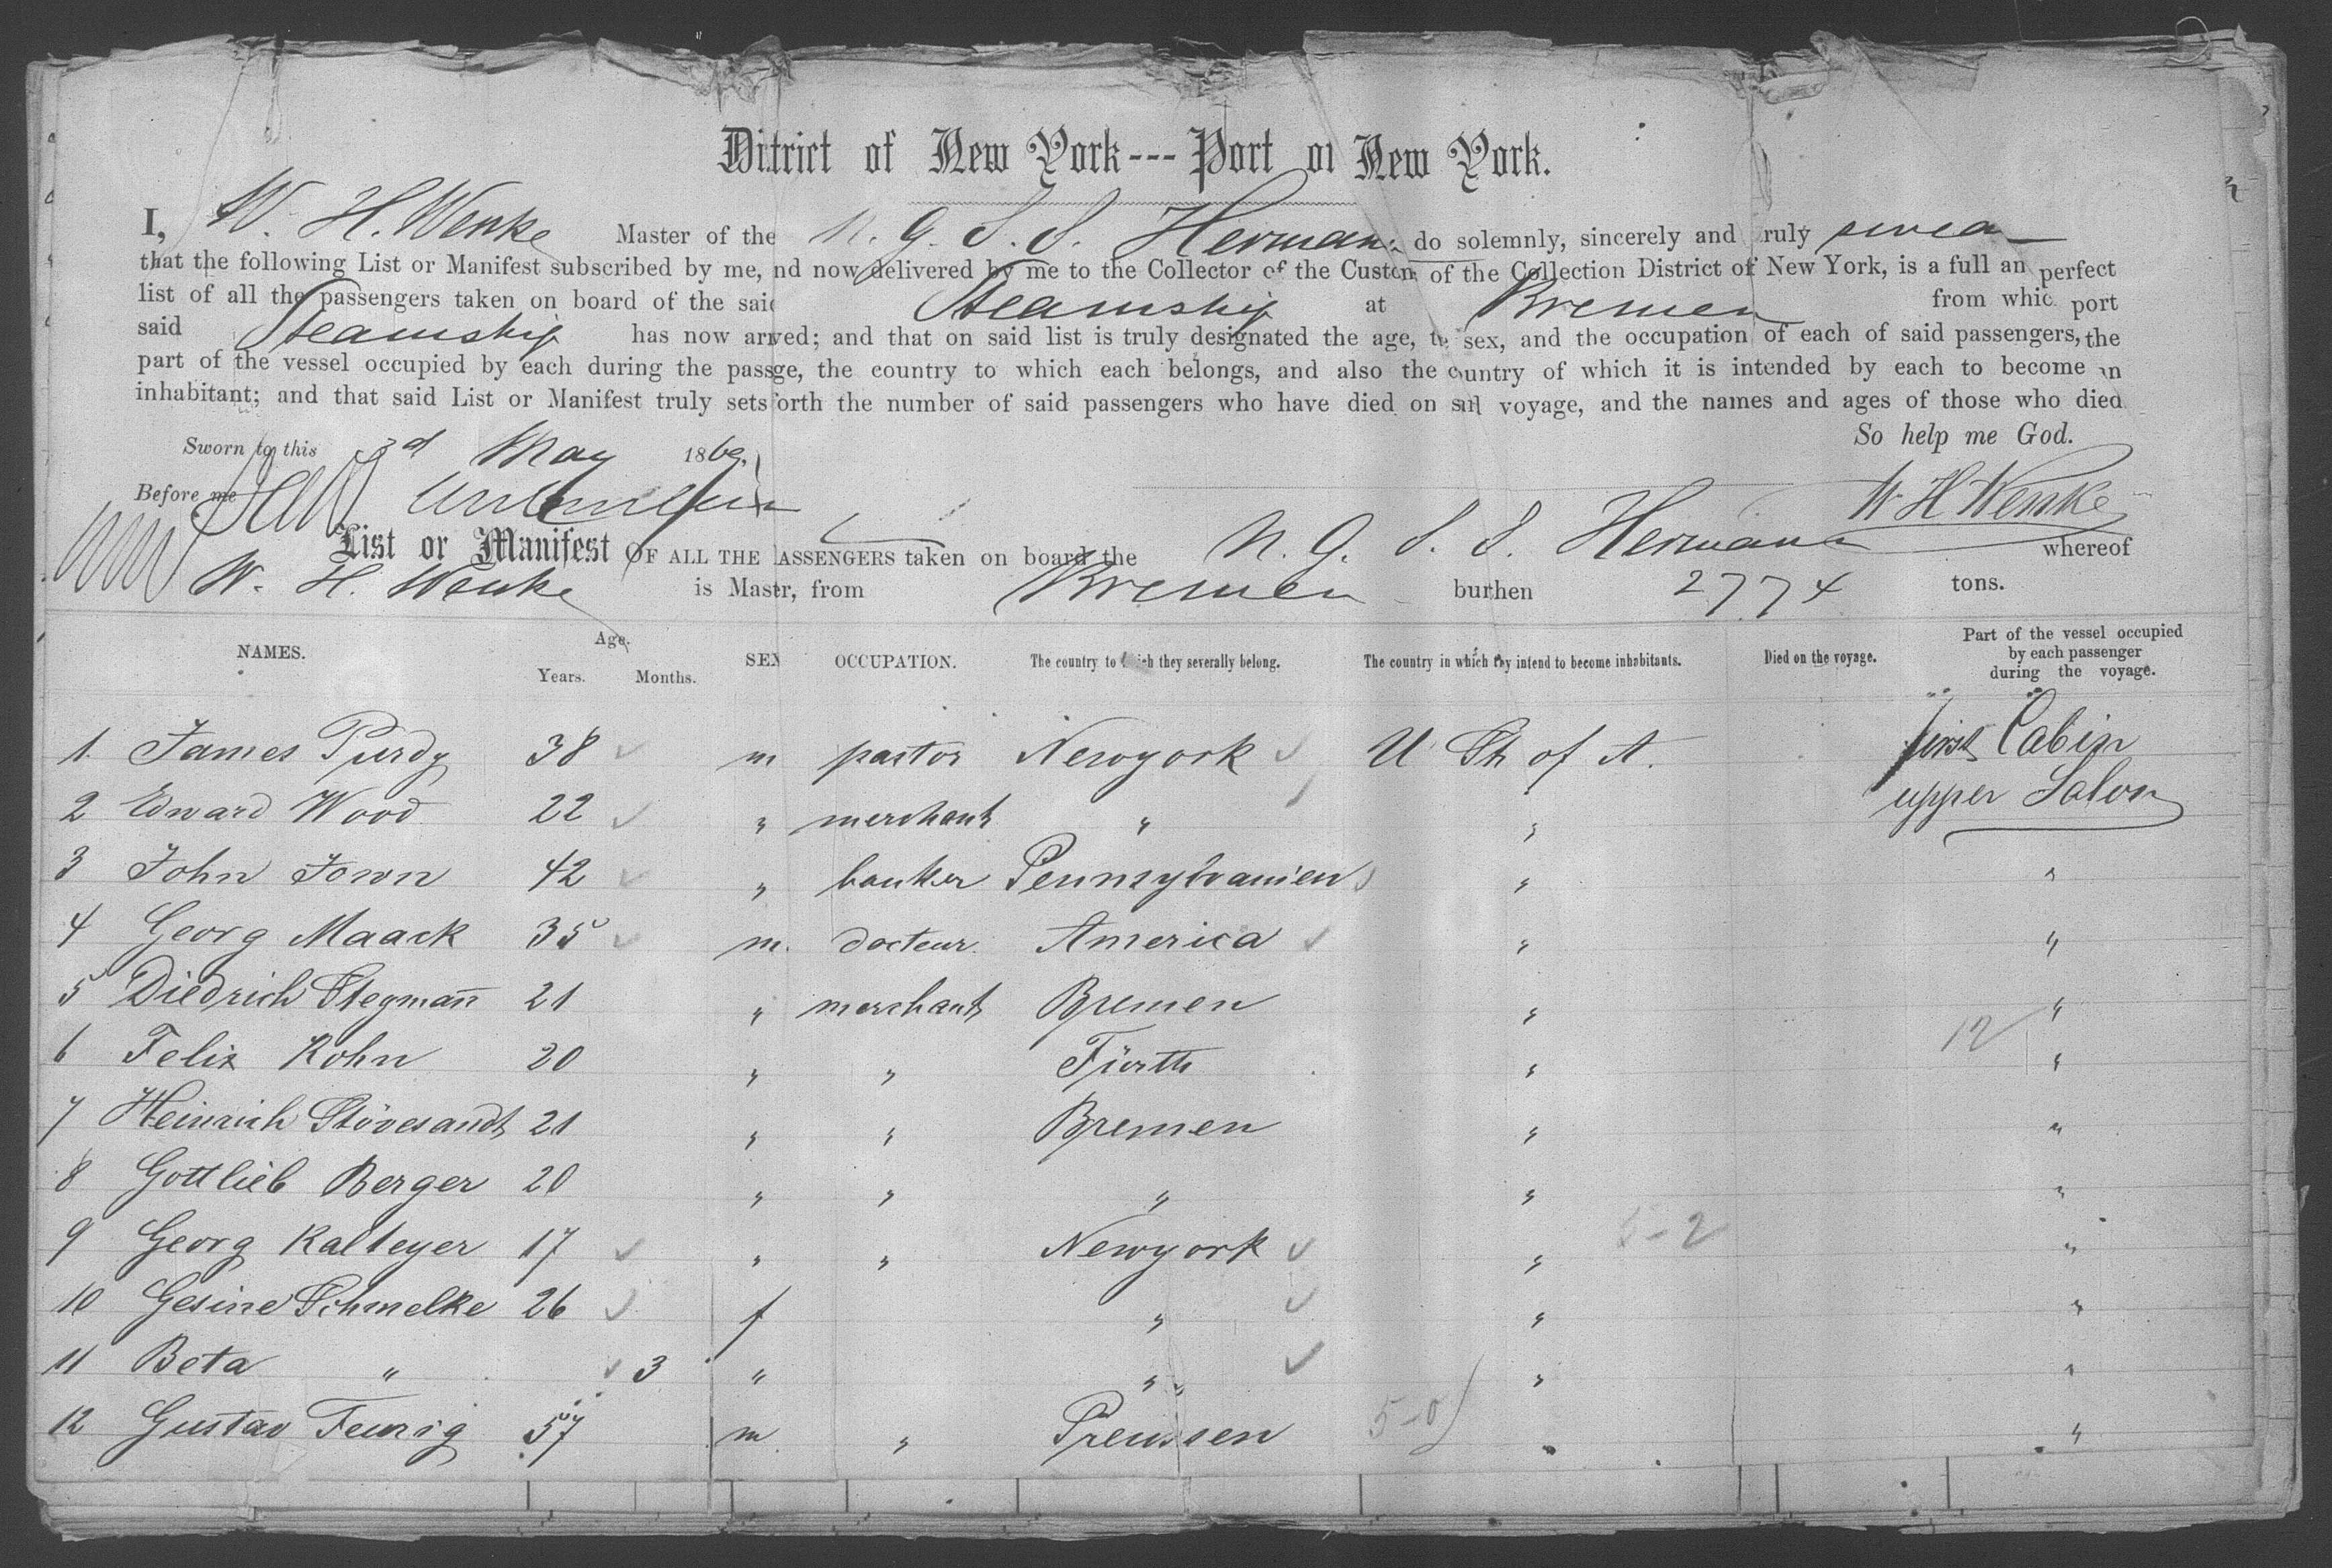 Ditrict of New York --- Port of New York.
I, W. H. Wenke Master of the N. G. S. S. Hermann do solemnly, sincerely and truly swear
that the following List or Manifest subscribed by me, nd now delivered by me to the Collector of the Custom of the Collection District of New York, is a full an perfect
list of all the passengers taken on board of the said Steamship at Bremen from whic port
said Steamship has now arved; and that on said list is truly designated the age, te sex, and the occupation of each of said passengers, the
part of the vessel occupied by each during the passge, the country to which each belongs, and also the cuntry of which it is intended by each to become an
inhabitant; and that said List or Manifest truly sets forth the number of said passengers who have died on said voyage, and the names and ages of those who died
So help me God.
Sworn to this 3d May 1869,
Before me
W H Wenke
List or Manifest OF ALL THE PASSENGERS taken on board the N. G. S. S. Hermann whereof
W. H. Wenke is Mastr, from Bremen burthen 2774 tons.
NAMES. Age. Years. Months. SEX OCCUPATION. The country to which they severally belong. The country in which they intend to become inhabitants. Died on the voyage. Part of the vessel occupied by each passenger during the voyage.
1. James Purdy 38 m pastor Newyork U St of A. first Cabin
2 Edward Wood 22 " merchant " " upper Salon
3 John Town 42 " banker Pennsylvanien " "
4 Georg Maack 35 m. docteur. America " "
5 Diedrich Stegmañ 21 " merchant Bremen " "
12
6 Felix Kohn 20 " " Fürth " "
7 Heinrich Stövesandt 21 " " Bremen " "
8 Gottlieb Berger 20 " " " " "
5-2
9 Georg Kalteyer 17 " " Newyork " "
10 Gesine Schmelke 26 f " " "
11 Beta " 3 " " " "
12 Gustav Feurig 57 m " Preussen 5-0 " "